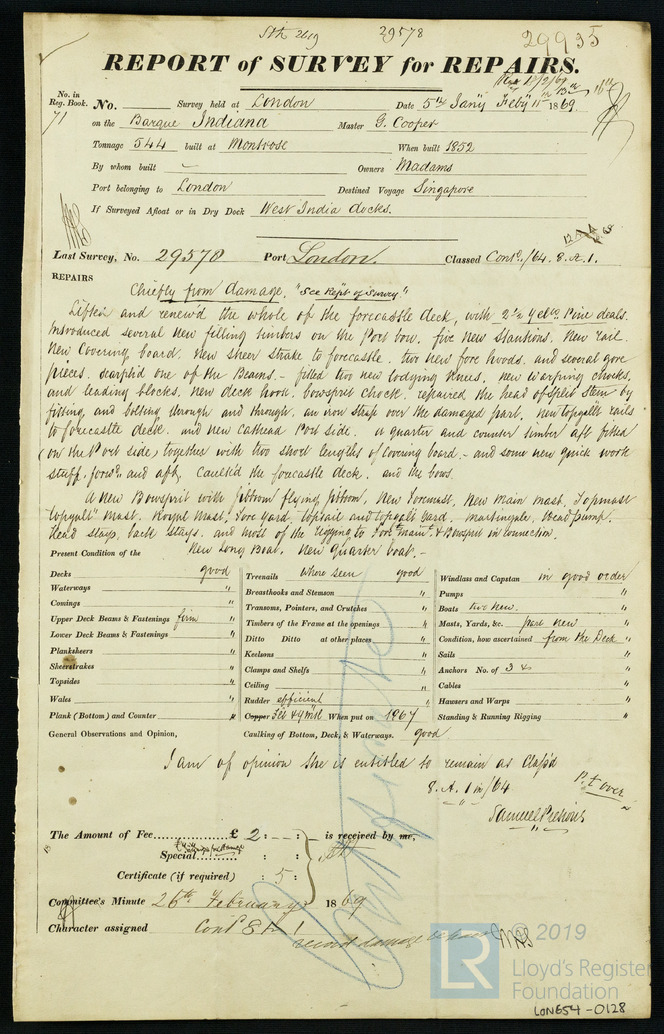 Sth 2619 29578 29935
REPORT of SURVEY for REPAIRS.
No. in Reg. Book. No. Survey held at London Date 5th Jany Feby 11th 1869
71 on the Barque Indiana Master G. Cooper
Tonnage 544 built at Montrose When built 1852
By whom built — Owners Madams
Port belonging to London Destined Voyage Singapore
If Surveyed Afloat or in Dry Dock West India docks.
Last Survey, No. 29578 Port London. Classed Contd./64. 8. A.1.
REPAIRS
Chiefly from damage, "See Rept of Survey."
Lifted and renew'd the whole of the forecastle deck, with 2½ Yelw Pine deals.
Introduced several New filling timbers on the Port bow, five New Stantions. New rail.
New Covering board. New sheer strake to forecastle. two new fore hoods. and several gore
pieces. scarph'd one of the Beams. fitted two new lodging knees, new warping chocks,
and leading blocks, new deck hook, bowsprit chock, repaired the head of Split Stem by
fitting, and bolting through and through. an iron strap over the damaged part, new topgallt rails
to forecastle deck. and new cathead Port side. A quarter and counter timber aft fitted
(on the Port side), together with two short lengths of covering board - and some new quick work
stuff, forwd. and aft, Caulk'd the forecastle deck. and the bows.
A New Bowsprit with Jibboom flying jibboom, New Foremast, New Main mast, Topmast
topgallt Mast. Royal Mast, Fore Yard, topsail and topgallt Yard, Martingale, Head pump.
Head stays, back stays. and most of the rigging to Fore & Main & Bowsprit in connection.
New Long Boat. New quarter boat. -
Present Condition of the
Decks good
Waterways "
Comings "
Upper Deck Beams & Fastenings firm "
Lower Deck Beams & Fastenings "
Planksheers "
Sheerstrakes "
Topsides "
Wales "
Plank (Bottom) and Counter "
Treenails Where seen good
Breasthooks and Stemson "
Transoms, Pointers, and Crutches "
Timbers of the Frame at the openings "
Ditto Ditto at other places "
Keelsons "
Clamps and Shelfs "
Ceiling "
Rudder efficient "
Copper Felt & YMtl When put on 1867
Windlass and Capstan in good order
Pumps "
Boats two new. "
Masts, Yards, &c. part new "
Condition, how ascertained from the Deck "
Sails "
Anchors No. of 3 & "
Cables "
Hawsers and Warps "
Standing & Running Rigging "
General Observations and Opinion, Caulking of Bottom, Deck, & Waterways. good
I am of opinion she is entitled to remain as Class'd
8. A. 1 in/64
P.t over
Samuel Pretious
The Amount of Fee £ 2 : - : - is received by me,
Special : :
Certificate (if required) : 5 :
Committee's Minute 26th February 1869
Character assigned Contd 8 A 1
record damage repairs
© 2019
LR
Lloyd's Register
Foundation
LON654-0128